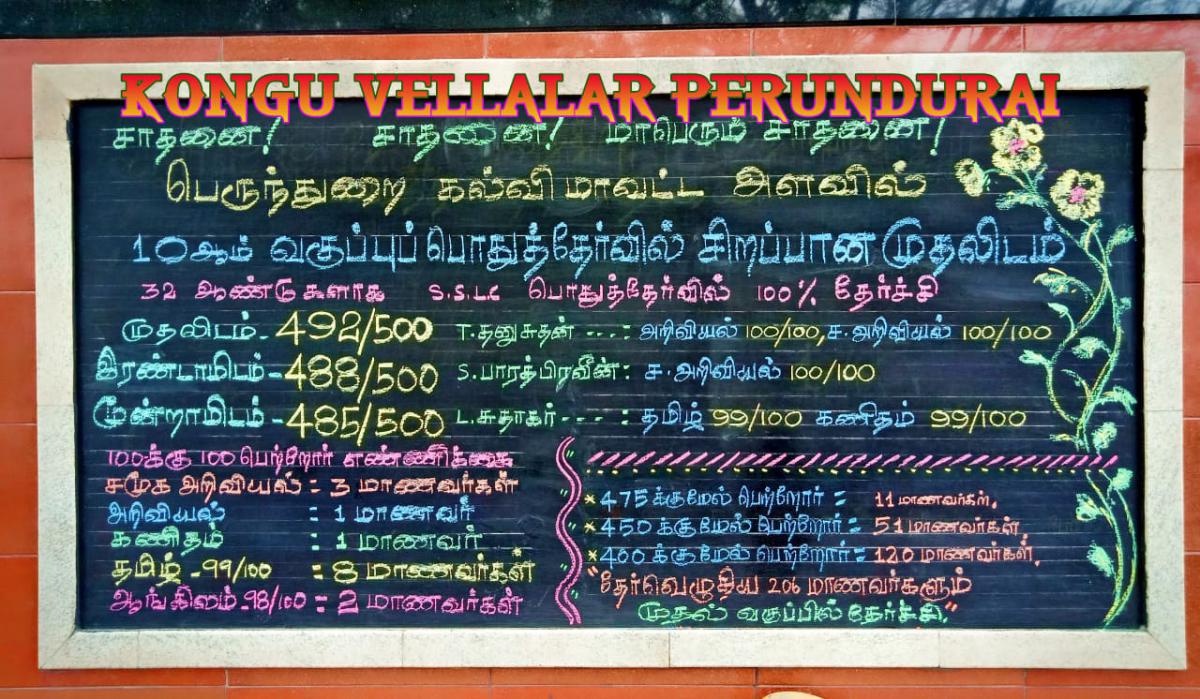 KONGU VELLALAR PERUNDURAI
சாதனை! சாதனை! மாபெரும் சாதனை!
பெருந்துறை கல்வி மாவட்ட அளவில்
10ஆம் வகுப்புப் பொதுத்தேர்வில் சிறப்பான முதலிடம்
32 ஆண்டுகளாக S.S.L.C பொதுத்தேர்வில் 100% தேர்ச்சி
முதலிடம் - 492/500 T.தனுசுதன் ---: அறிவியல் 100/100, ச.அறிவியல் 100/100
இரண்டாமிடம் - 488/500 S.பாரத்பிரவீன்: ச.அறிவியல் 100/100
மூன்றாமிடம் - 485/500 L.சுதாகர் ---: தமிழ் 99/100 கணிதம் 99/100
100க்கு 100 பெற்றோர் எண்ணிக்கை
சமூக அறிவியல் : 3 மாணவர்கள்
அறிவியல் : 1 மாணவர்
கணிதம் : 1 மாணவர்
தமிழ் -99/100 : 8 மாணவர்கள்
ஆங்கிலம் -98/100 : 2 மாணவர்கள்
*475 க்குமேல் பெற்றோர் : 11 மாணவர்கள்.
*450 க்குமேல் பெற்றோர் : 51 மாணவர்கள்.
*400 க்குமேல் பெற்றோர் : 120 மாணவர்கள்.
"தேர்வெழுதிய 206 மாணவர்களும்
முதல் வகுப்பில் தேர்ச்சி."